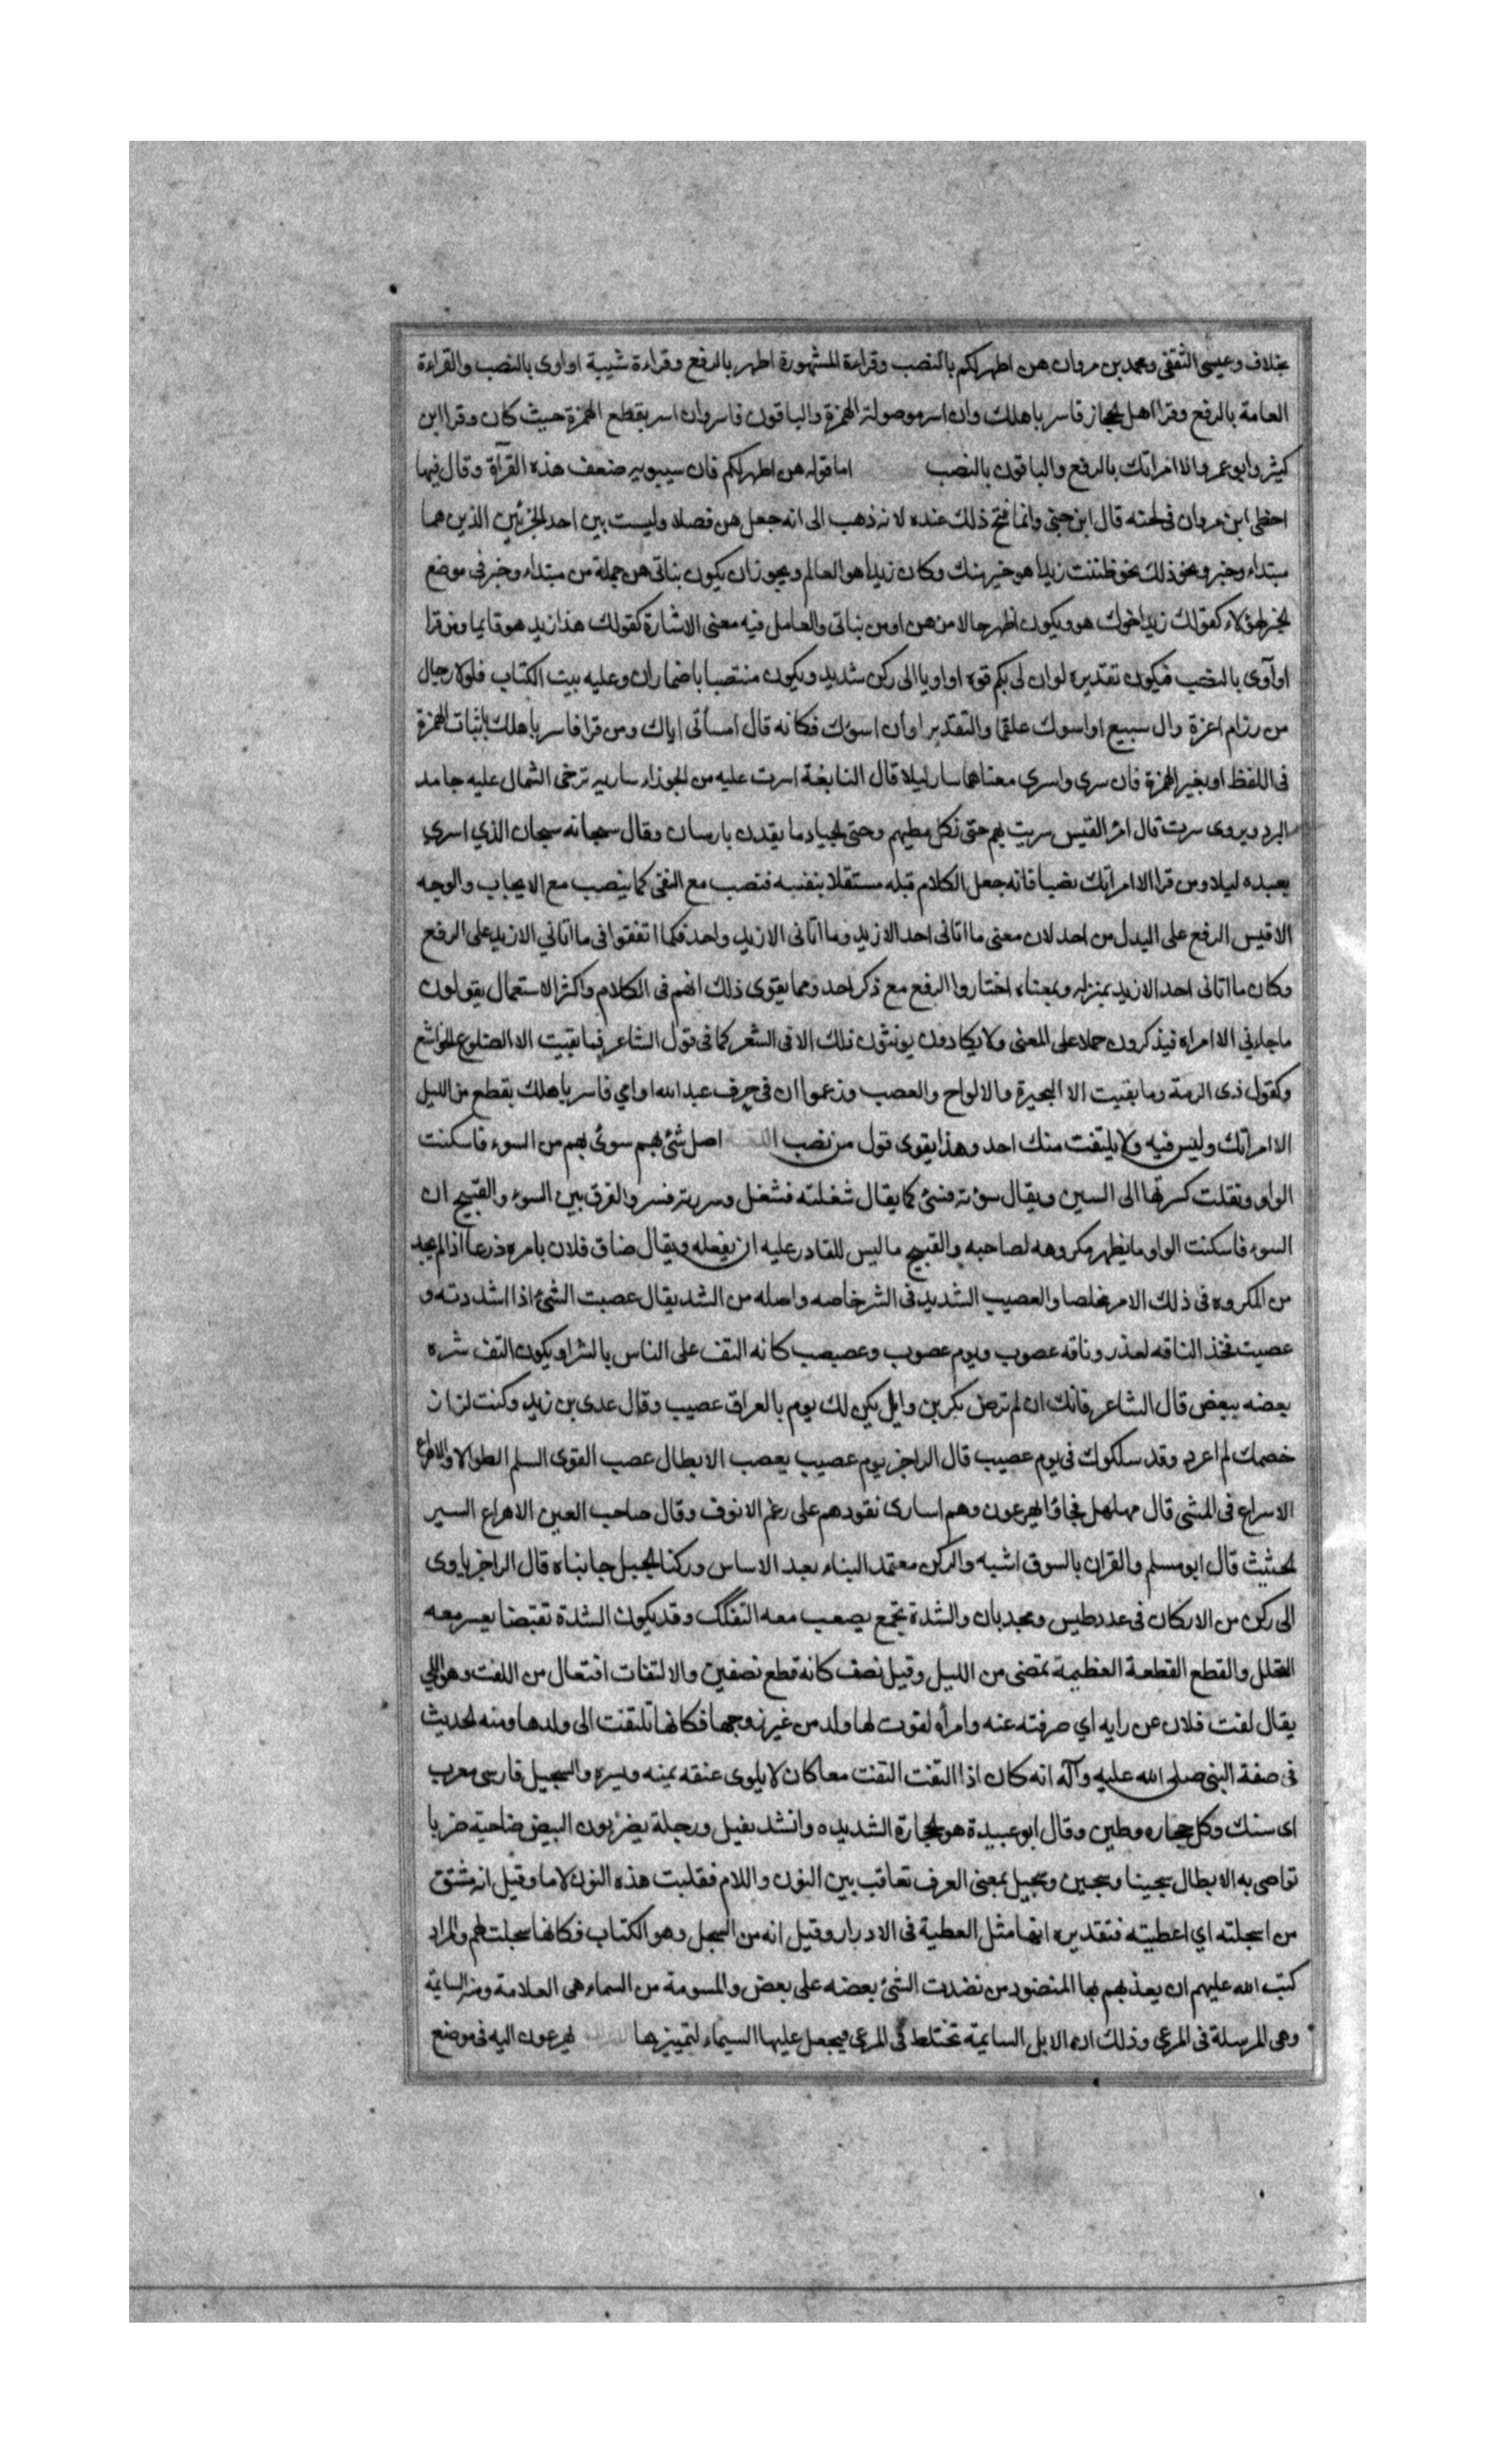 بخلاف وعيسى الثقفى ومحمد بن مروان هن اطهر لكم بالنصب وقراءة المشهورة اطهر بالرفع وقراءة شيبة او اوى بالنصب والقراءة
العامة بالرفع وقرا اهل الحجاز فاسر باهلك وان اسر موصولة الهمزة والباقون فاسر وان اسر بقطع الهمزة حيث كان وقرا ابن
كثير وابو عمرو الا امراتك بالرفع والباقون بالنصب اما قوله هن اطهر لكم فان سيبويه ضعف هذه القرآة وقال فيها
احتبى ابن مروان فى لحنه قال ابن جنى وانما قبح ذلك عنده لانه ذهب الى انه جعل هن فصلا وليست بين احد الجزئين الذين هما
مبتداء وخبر ونحو ذلك نحو ظننت زيدا هو خير منك وكان زيدا هو العالم ويجوز ان يكون بناتى هن جملة من مبتداء وخبر فى موضع
الخبر لهؤلاء كقولك زيد اخوك هو ويكون اطهر حالا من هن او من بناتى والعامل فيه معنى الاشارة كقولك هذا زيد هو قايما ومن قرا
او آوى بالنصب فيكون تقديره لو ان لى بكم قوه او اويا الى ركن شديد ويكون منتصبا باضمار ان وعليه بيت الكتاب فلولا رجال
من رزام اعزة وال سبيع او اسوك علقما والتقدير او ان اسوك فكانه قال امسأتى اياك ومن قرا فاسر باهلك باثبات الهمزة
فى اللفظ او بغير الهمزة فان سرى واسرى معناهما سار ليلا قال النابغة اسرت عليه من الجوزاء سارية تزجى الشمال عليه جامد
البرد ويروى سرت قال امرؤ القيس سريت بهم حتى تكل مطيهم وحتى الجياد ما يقدن بارسان وقال سبحانه سبحان الذي اسرى
بعبده ليلا ومن قرا الا امراتك نصبا فانه جعل الكلام قبله مستقلا بنفسه فنصب مع النفى كما ينصب مع الايجاب والوجه
الاقيس الرفع على البدل من احد لان معنى ما اتانى احد الا زيد وما اتانى الا زيد واحد فكما اتفقوا فى ما اتاني الا زيد على الرفع
وكان ما اتانى احد الا زيد بمنزله وبمعناه اختاروا الرفع مع ذكر احد ومما يقوى ذلك انهم فى الكلام واكثر الاستعمال يقولون
ما جاءني الا امراه فيذكرون حملا على المعنى ولا يكادون يونثون ذلك الا فى الشعر كما فى قول الشاعر فما بقيت الا الضلوع الجراشع
وكقول ذى الرمة وما بقيت الا النحيزة والالواح والعصب وزعموا ان فى حرف عبد الله او ابي فاسر باهلك بقطع من الليل
الا امراتك وليس فيه ولا يلتفت منك احد وهذا يقوى قول من نصب اصل سئ بهم سوئ بهم من السوء فاسكنت
الواو ونقلت كسرتها الى السين ويقال سؤته فسئ كما يقال شغلته فشغل وسررته فسر والفرق بين السوء والقبيح ان
السوء فاسكنت الواو ما يظهر مكروهه لصاحبه والقبيح ما ليس للقادر عليه ان يفعله ويقال ضاق فلان بامره ذرعا اذا لم يجد
من المكروه فى ذلك الامر مخلصا والعصيب الشديد فى الشر خاصه واصله من الشد يقال عصبت الشئ اذا شددته و
عصبت فخذ الناقه لتدر وناقه عصوب ويوم عصوب وعصيصب كانه التف على الناس بالشر او يكون التف شره
بعضه ببعض قال الشاعر فانك ان لم ترض بكر بن وايل يكن لك يوم بالعراق عصيب وقال عدى بن زيد وكنت لزاز
خصمك لم اعرد وقد سلكوك فى يوم عصيب قال الراجز يوم عصيب يعصب الابطال عصب القوى السلم الطوالا والاهراع
الاسراع فى المشى قال مهلهل فجاؤا يهرعون وهم اسارى نقودهم على رغم الانوف وقال صاحب العين الاهراع السير
الحثيث قال ابو مسلم والقران بالسوق اشبه والركن معتمد البناء بعد الاساس وركنا الجبل جانباه قال الراجز ياوى
الى ركن من الاركان فى عدد طيس ومجد بان والشدة تجمع يصعب معه التفكك وقد يكون الشدة تقبضا يعسر معه
التحلل والقطع القطعة العظيمة تمضى من الليل وقيل نصف كانه قطع نصفين والالتفات افتعال من اللفت وهو اللي
يقال لفت فلان عن رايه اي صرفته عنه وامرأه لفوت لها ولد من غير زوجها فكانها تلتفت الى ولدها ومنه الحديث
فى صفة النبي صلى الله عليه وآله انه كان اذا التفت التفت معا كان لا يلوى عنقه يمنه ويسره والسجيل فارسى معرب
اى سنك وكل حجاره وطين وقال ابو عبيدة هو الحجارة الشديده وانشد بقيل ورجلة يضربون البيض ضاحية ضربا
تواصى به الابطال سجينا وسجين وسجيل بمعنى العرف تعاقب بين النون واللام فقلبت هذه النون لاما وقيل انه مشتق
من اسجلته اي اعطيته فتقديره انها مثل العطية فى الادرار وقيل انه من السجل وهو الكتاب فكانها سجلت لهم والمراد
كتب الله عليهم ان يعذبهم بها المنضود من نضدت الشئ بعضه على بعض والمسومة من السماء هى العلامة ومنه السايمة
وهى المرسلة فى المرعى وذلك ان الابل السايمة تختلط فى المرعى فيجعل عليها السيماء لتمييزها يهرعون اليه فى موضع